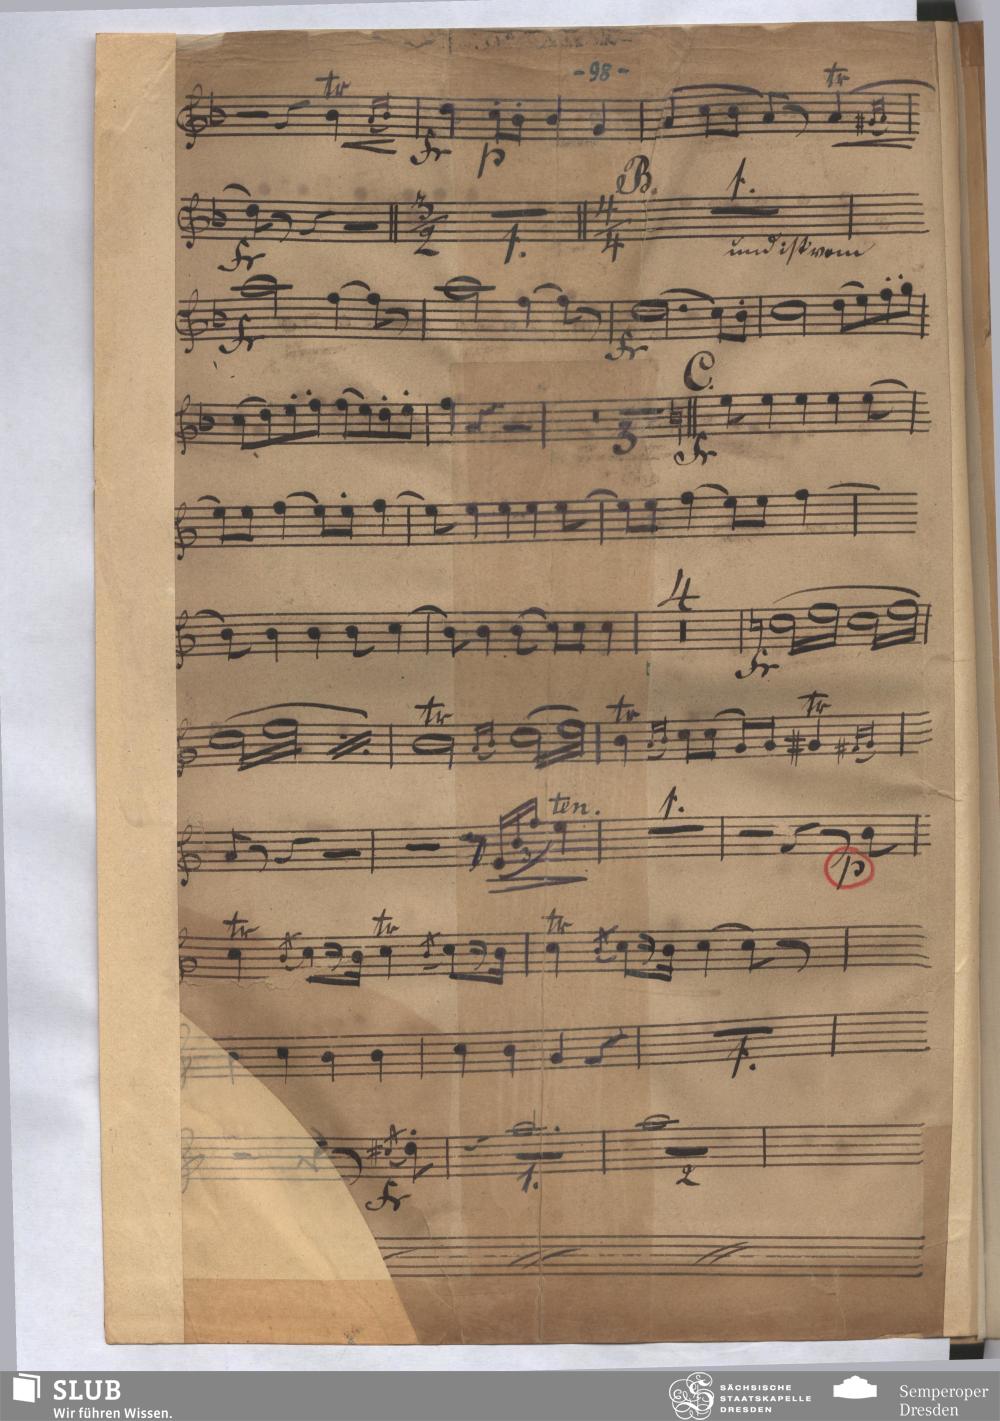 -98-
tr tr
Fr p
B.
3 4 1.
2 1. 4
Fr und ist vom
Fr Fr
C.
3 Fr
4
Fr
tr tr tr
ten. 1.
p
tr tr tr
1.
Fr 1. 2
SLUB
Wir führen Wissen.
SÄCHSISCHE
STAATSKAPELLE
DRESDEN
Semperoper
Dresden